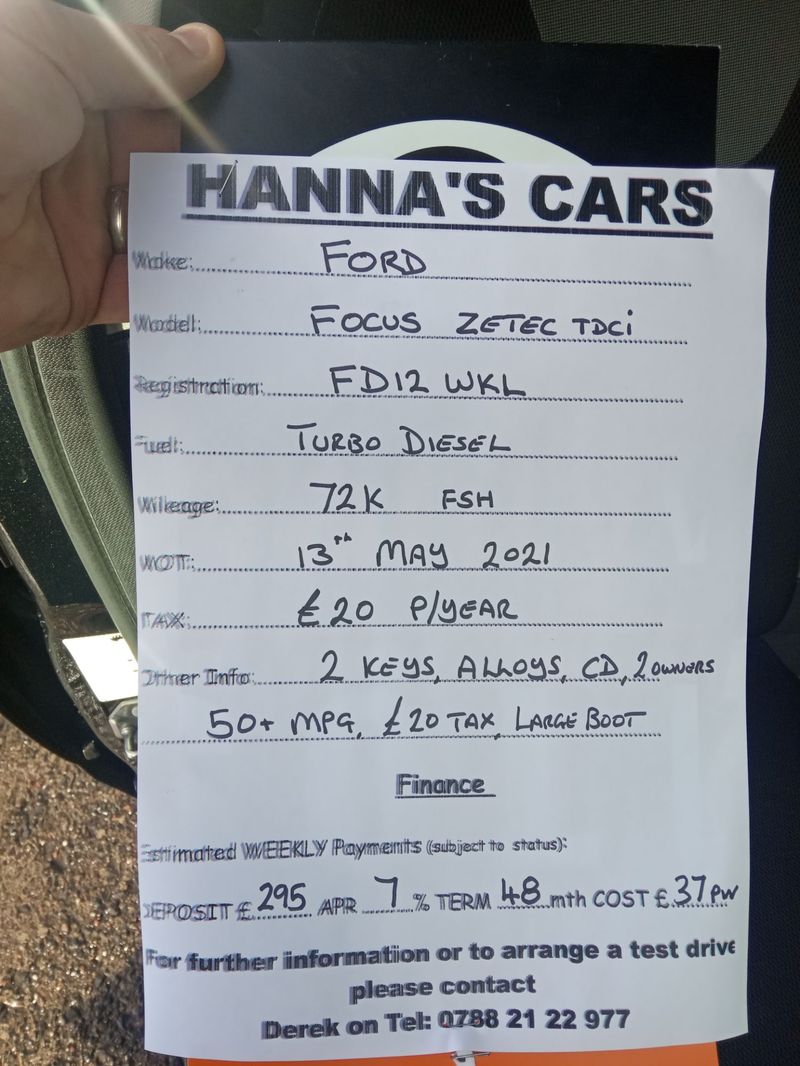 HANNA'S CARS
Make: FORD
Model: FOCUS ZETEC TDCi
Registration: FD12 WKL
Fuel: TURBO DIESEL
Mileage: 72K FSH
MOT: 13TH MAY 2021
TAX: £20 P/YEAR
Other Info: 2 KEYS, ALLOYS, CD, 2 OWNERS
50+ MPG, £20 TAX, LARGE BOOT
Finance
Estimated WEEKLY Payments (subject to status):
DEPOSIT £ 295 APR 7 % TERM 48 mth COST £ 37 PW
For further information or to arrange a test drive
please contact
Derek on Tel: 0788 21 22 977